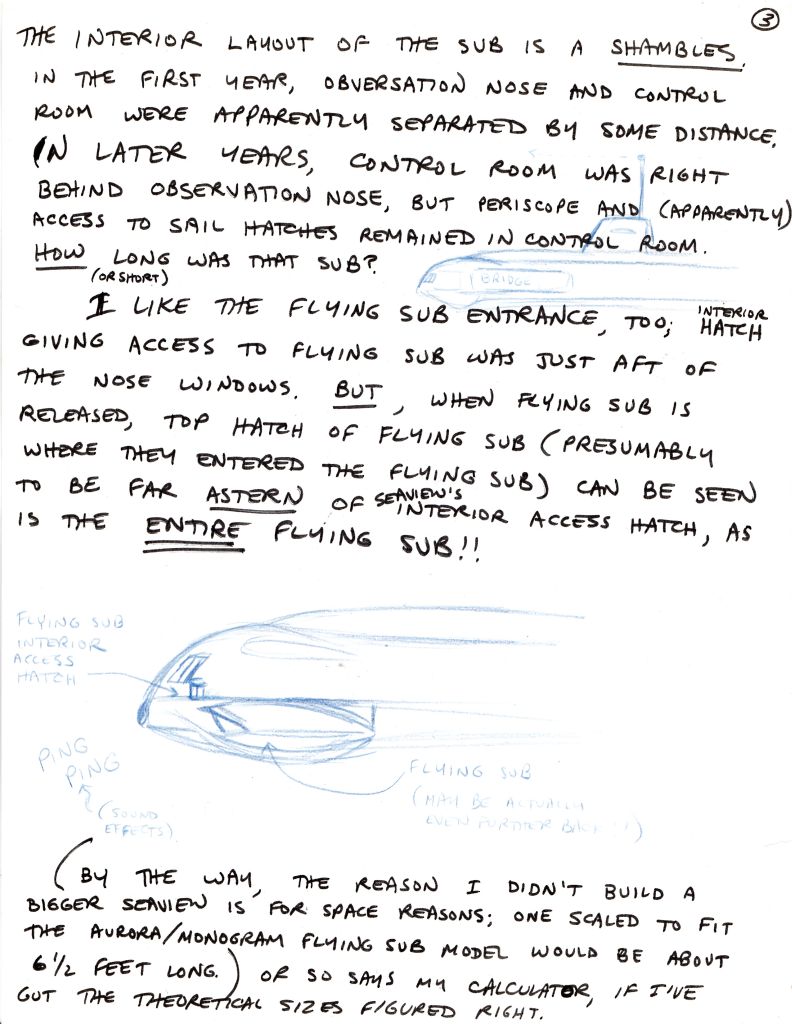 3
THE INTERIOR LAYOUT OF THE SUB IS A SHAMBLES.
IN THE FIRST YEAR, OBVERSATION NOSE AND CONTROL
ROOM WERE APPARENTLY SEPARATED BY SOME DISTANCE.
IN LATER YEARS, CONTROL ROOM WAS RIGHT
BEHIND OBSERVATION NOSE, BUT PERISCOPE AND (APPARENTLY)
ACCESS TO SAIL HATCHES REMAINED IN CONTROL ROOM.
HOW LONG WAS THAT SUB?
(OR SHORT)
BRIDGE
I LIKE THE FLYING SUB ENTRANCE, TOO; INTERIOR HATCH
GIVING ACCESS TO FLYING SUB WAS JUST AFT OF
THE NOSE WINDOWS. BUT, WHEN FLYING SUB IS
RELEASED, TOP HATCH OF FLYING SUB (PRESUMABLY
WHERE THEY ENTERED THE FLYING SUB) CAN BE SEEN
TO BE FAR ASTERN OF SEAVIEW'S INTERIOR ACCESS HATCH, AS
IS THE ENTIRE FLYING SUB!!
FLYING SUB
INTERIOR
ACCESS
HATCH
PING
PING
(SOUND
EFFECTS)
FLYING SUB
(MAY BE ACTUALLY
EVEN FURTHER BACK!!)
(BY THE WAY, THE REASON I DIDN'T BUILD A
BIGGER SEAVIEW IS FOR SPACE REASONS; ONE SCALED TO FIT
THE AURORA/MONOGRAM FLYING SUB MODEL WOULD BE ABOUT
6 1/2 FEET LONG.) OR SO SAYS MY CALCULATOR, IF I'VE
GOT THE THEORETICAL SIZES FIGURED RIGHT.